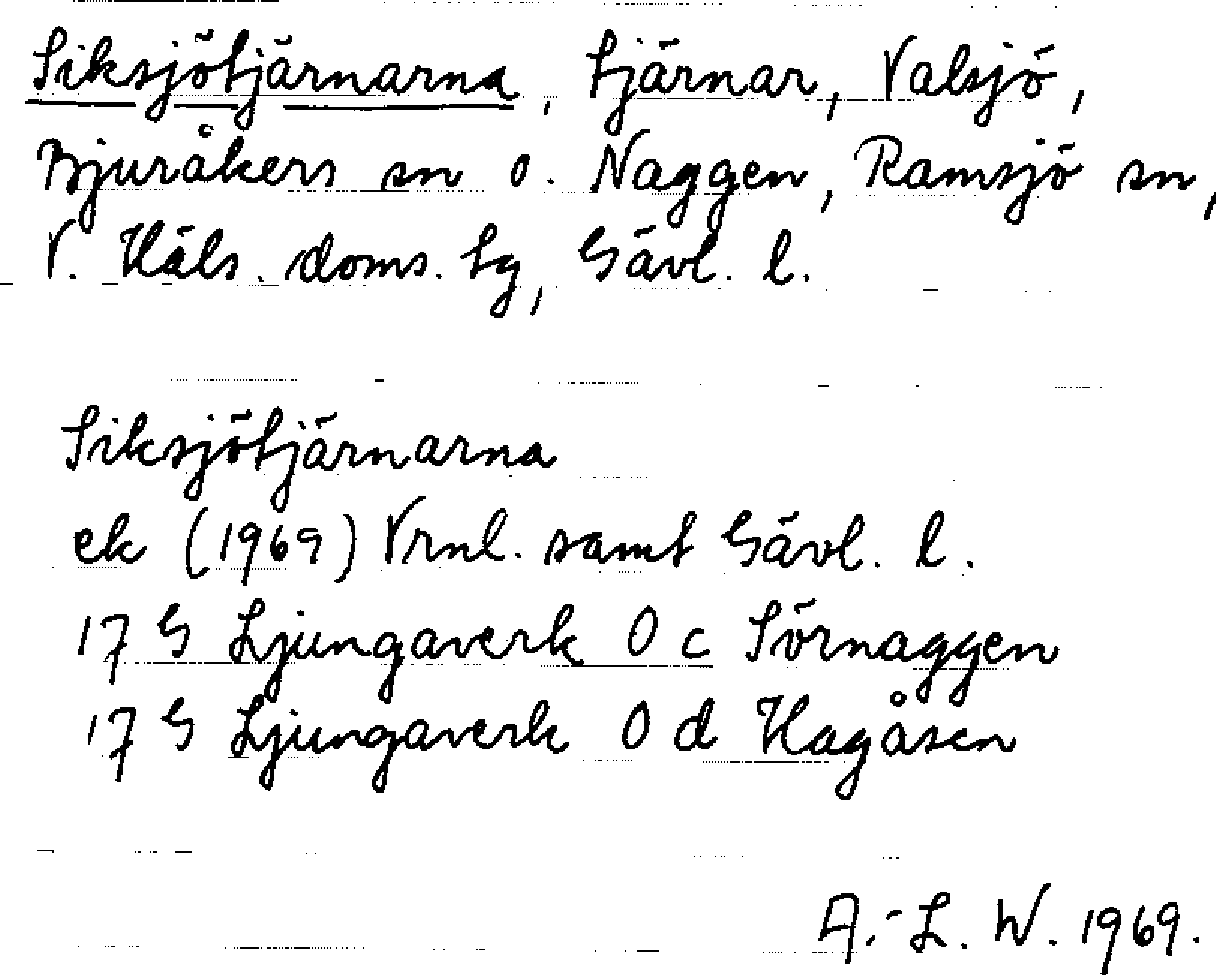 Siksjötjärnarna, tjärnar, Valsjö,
Bjuråkers sn o. Naggen, Ramsjö sn,
V. Häls. doms. tg, Gävl. l.
Siksjötjärnarna
ek (1969) Vrnl. samt Gävl. l.
17 G Ljungaverk 0 c Sörnaggen
17 G Ljungaverk 0 d Hagåsen
A.-L. W. 1969.